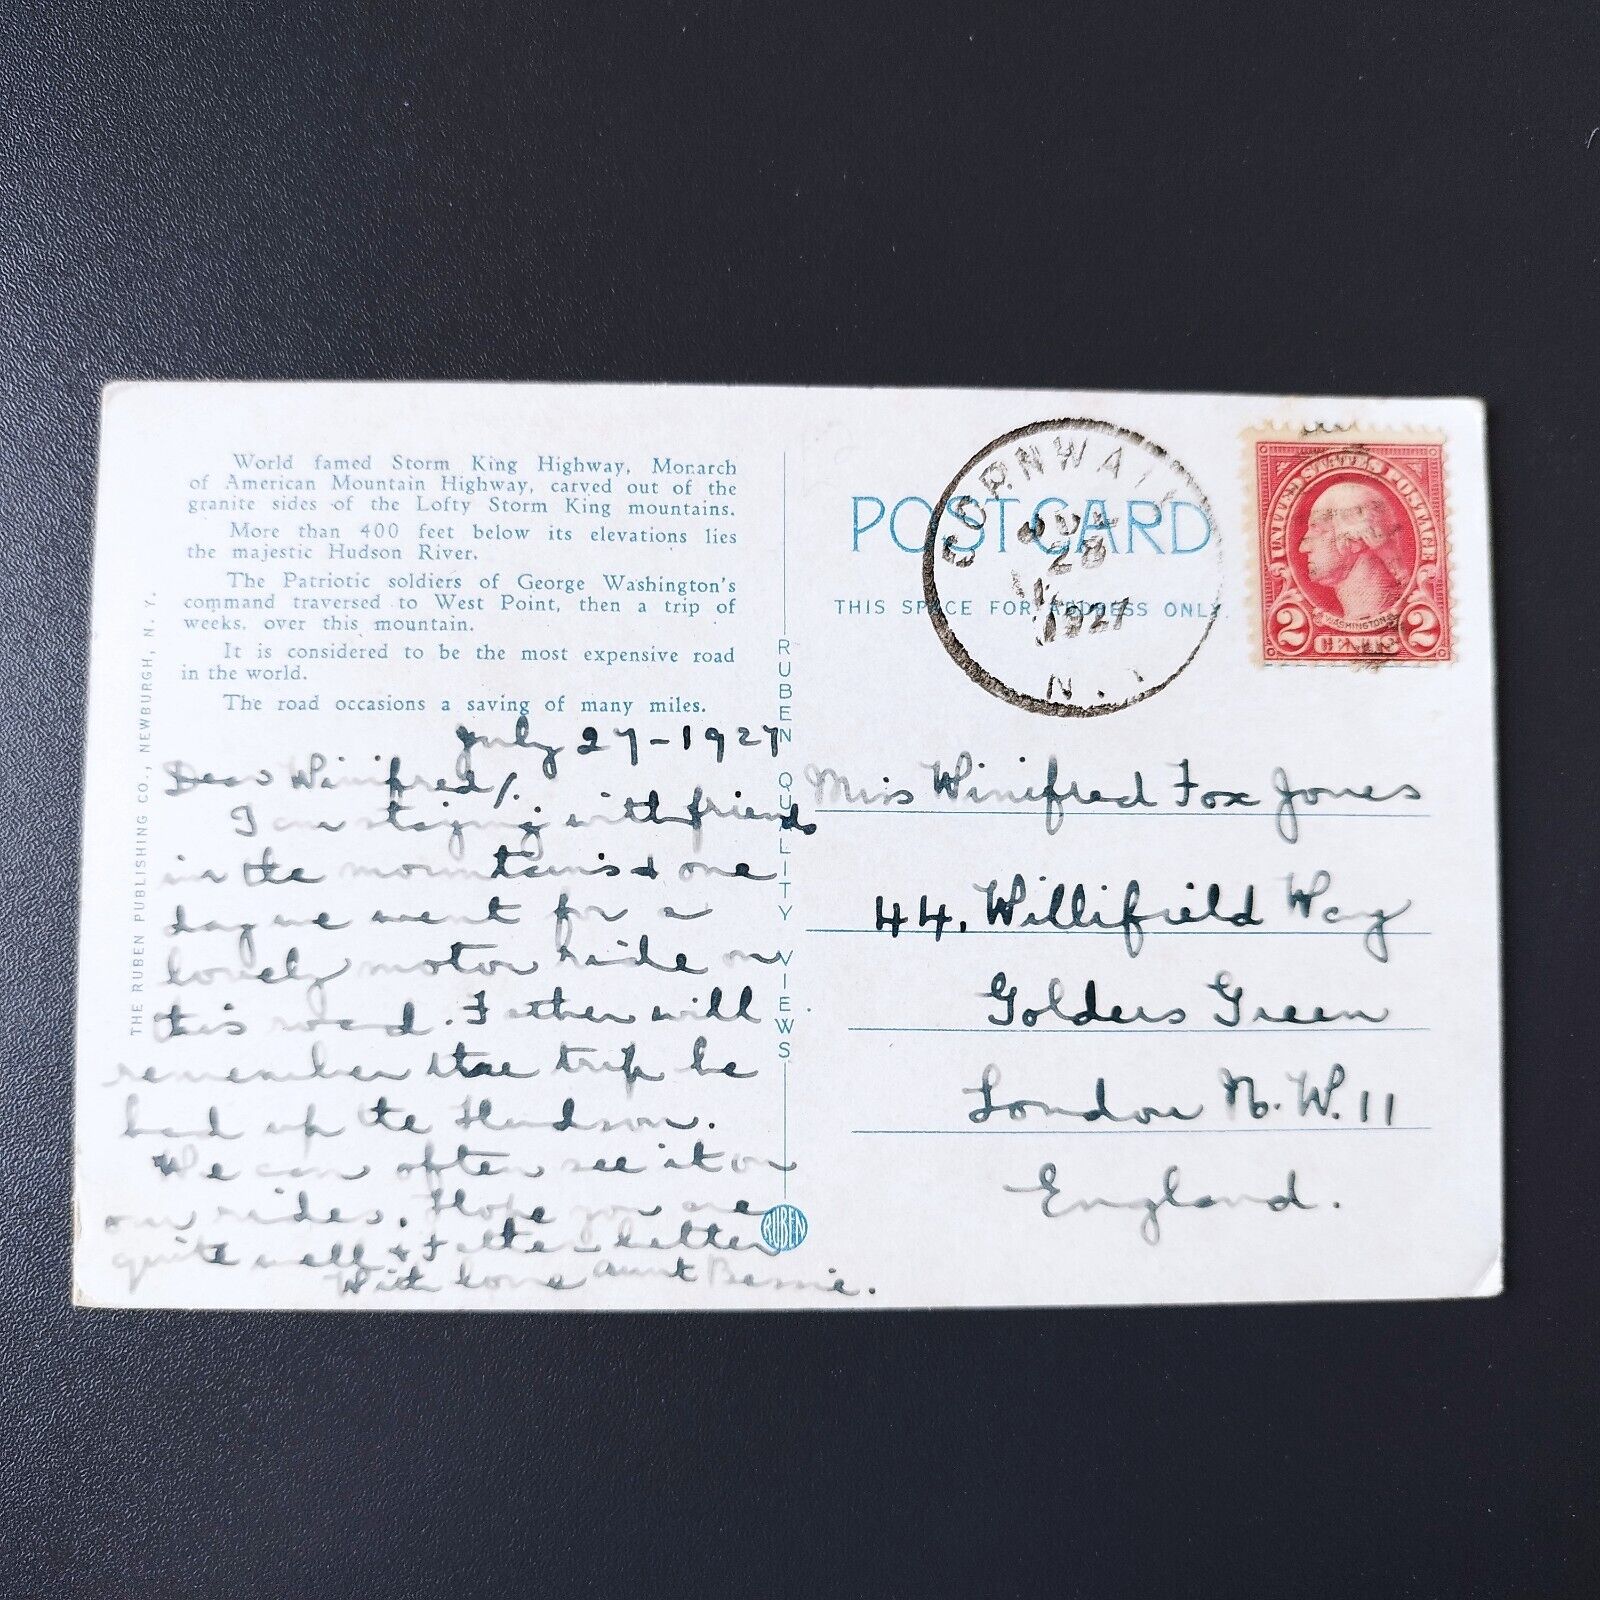 World famed Storm King Highway, Monarch
of American Mountain Highway, carved out of the
granite sides of the Lofty Storm King mountains.
More than 400 feet below its elevations lies
the majestic Hudson River.
The Patriotic soldiers of George Washington's
command traversed to West Point, then a trip of
weeks, over this mountain.
It is considered to be the most expensive road
in the world.
The road occasions a saving of many miles.
July 27-1927
Dear Winifred/.
I am staying with friends
in the mountains & one
day we went for a
lovely motor ride on
this road. Father will
remember the trip he
had up the Hudson.
We can often see it on
our rides. Hope you are
quite well & Father better
With love Aunt Bessie.
THE RUBEN PUBLISHING CO., NEWBURGH, N. Y.
RUBEN QUALITY VIEWS
RUBEN
POST CARD
THIS SPACE FOR ADDRESS ONLY.
CORNWALL
JUL
28
1927
N.Y
UNITED STATES POSTAGE
WASHINGTON
2 CENTS 2
Miss Winifred Fox Jones
44, Willifield Way
Golders Green
London N.W.11
England.